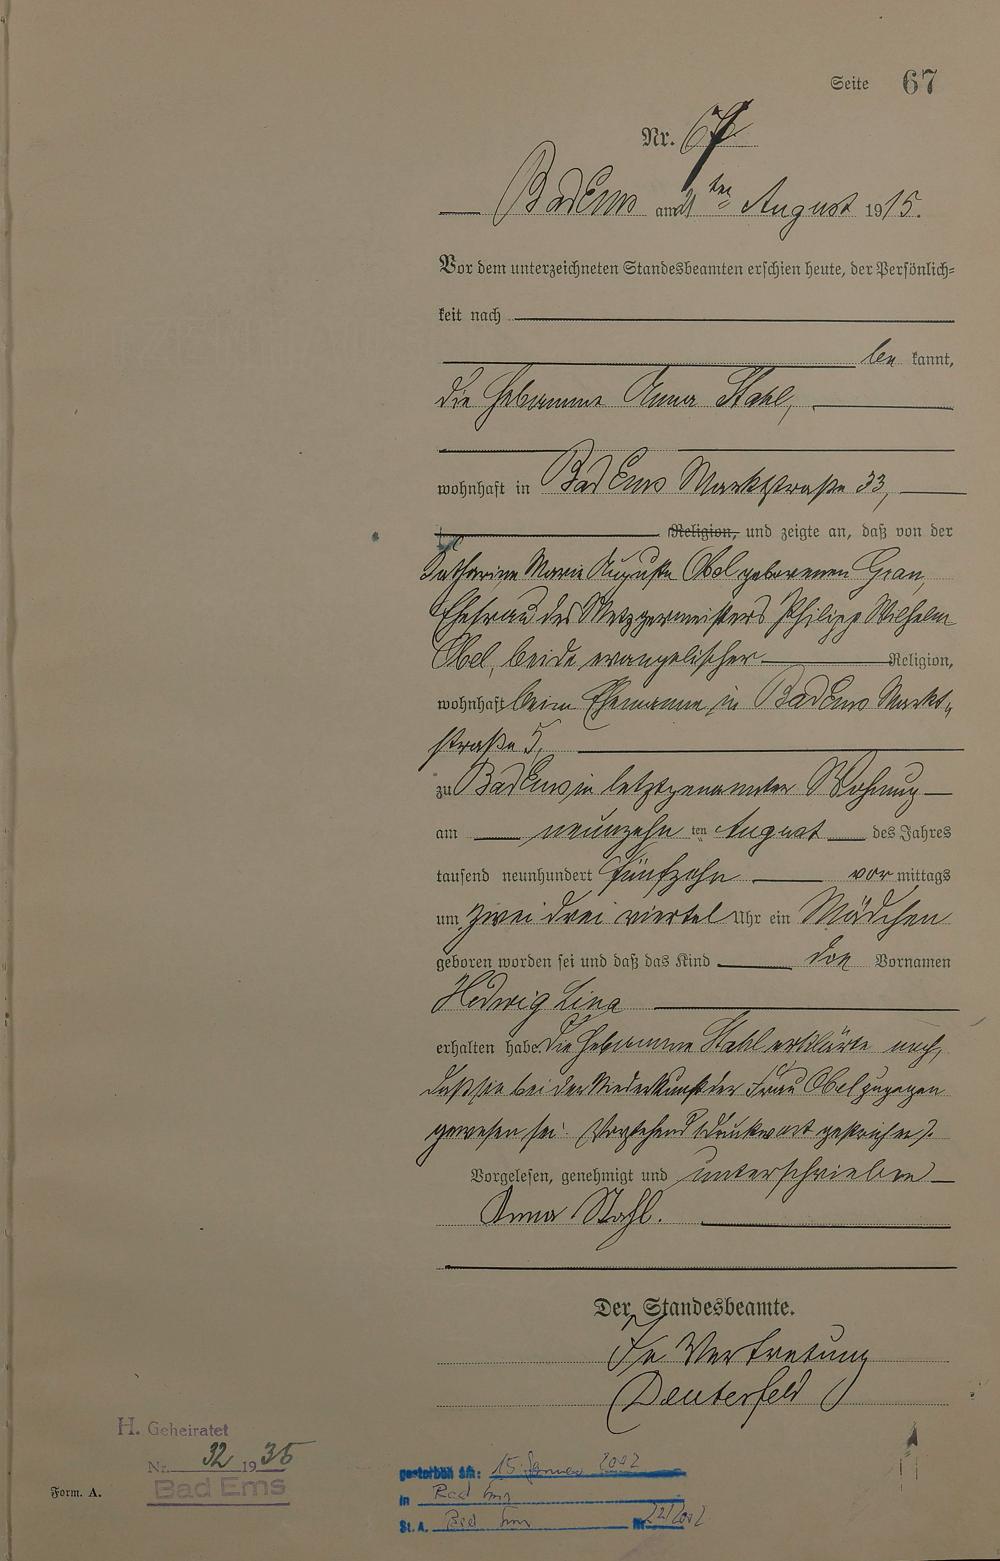 Seite 67
Nr. 67
Bad Ems am 21 ten August 1915.
Vor dem unterzeichneten Standesbeamten erschien heute, der Persönlich=
keit nach
be kannt,
die Hebamme Anna Stahl,
wohnhaft in Bad Ems Marktstraße 33,
Religion, und zeigte an, daß von der
Katharine Marie Auguste Obel geborenen Gran,
Ehefrau des Metzgermeisters Philipp Wilhelm
Obel, beide evangelischer Religion,
wohnhaft beim Ehemanne in Bad Ems Markt-
straße 5,
zu Bad Ems in letztgenannter Wohnung
am neunzehn ten August des Jahres
tausend neunhundert fünfzehn vor mittags
um zwei drei viertel Uhr ein Mädchen
geboren worden sei und daß das Kind den Vornamen
Hedwig Lina
erhalten habe. Die Hebamme Stahl erklärte noch,
daß sie bei der Niederkunft der Frau Obel zugegen
gewesen sei. Vorstehend 1 Druckwort gestrichen.
Vorgelesen, genehmigt und unterschrieben
Anna Stahl.
Der Standesbeamte.
In Vertretung
H. Geheiratet
Nr. 32 1935
Bad Ems
Form. A.
gestorben am: 15. Januar 2002
in Bad Ems
St. A. Bad Ems Nr. 22/2002